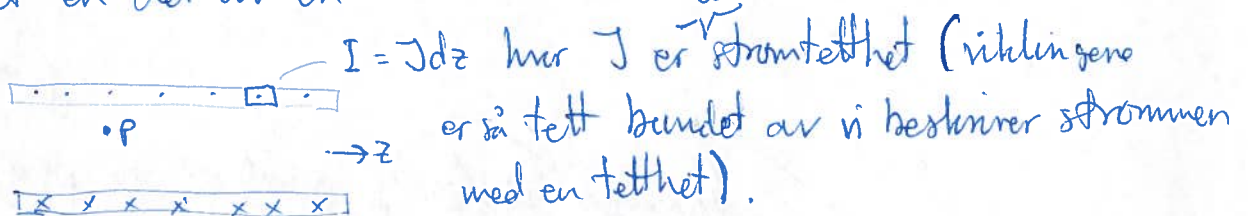 I = Jdz hvor J er strømtetthet (viklingene
•P
er så tett bundet av vi beskriver strømmen
→ z
med en tetthet).
x x x x x x x